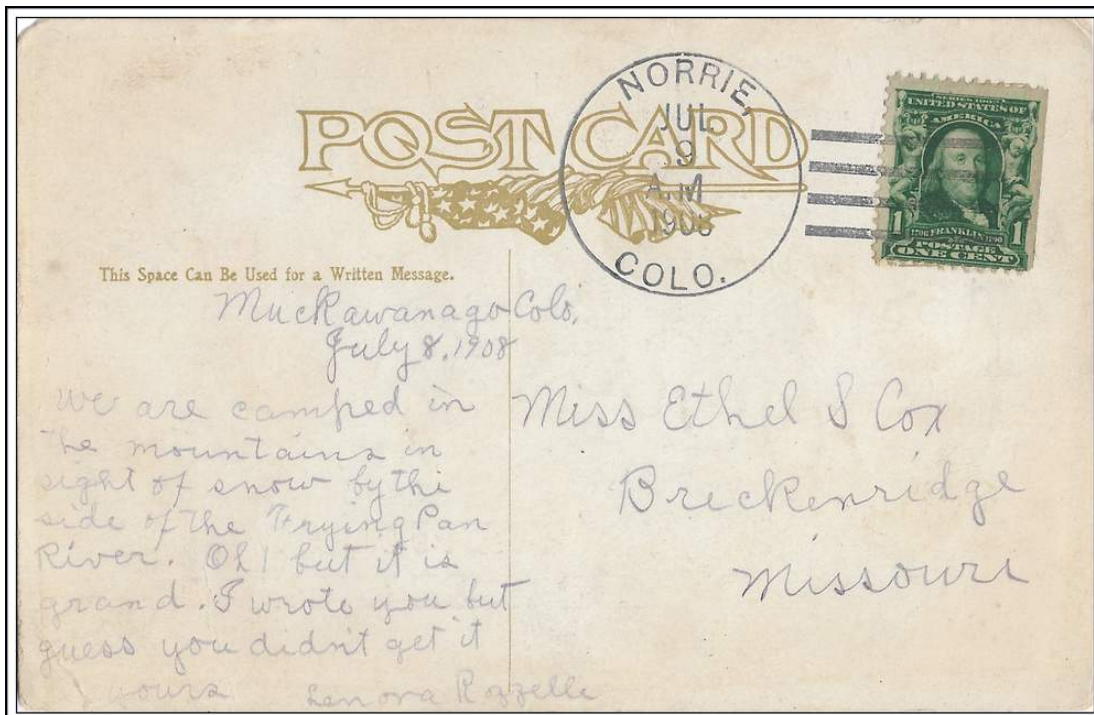 POST CARD
NORRIE,
JUL
9
A.M
1908
COLO.
SERIES 1902
UNITED STATES OF
AMERICA
1706 FRANKLIN 1790
1 POSTAGE 1
ONE CENT
This Space Can Be Used for a Written Message.
Muckawanago Colo,
July 8, 1908
We are camped in
the mountains in
sight of snow by the
side of the Frying Pan
River. Oh! but it is
grand. I wrote you but
guess you didn't get it
yours Lenora Rozzelle
Miss Ethel S Cox
Breckenridge
Missouri